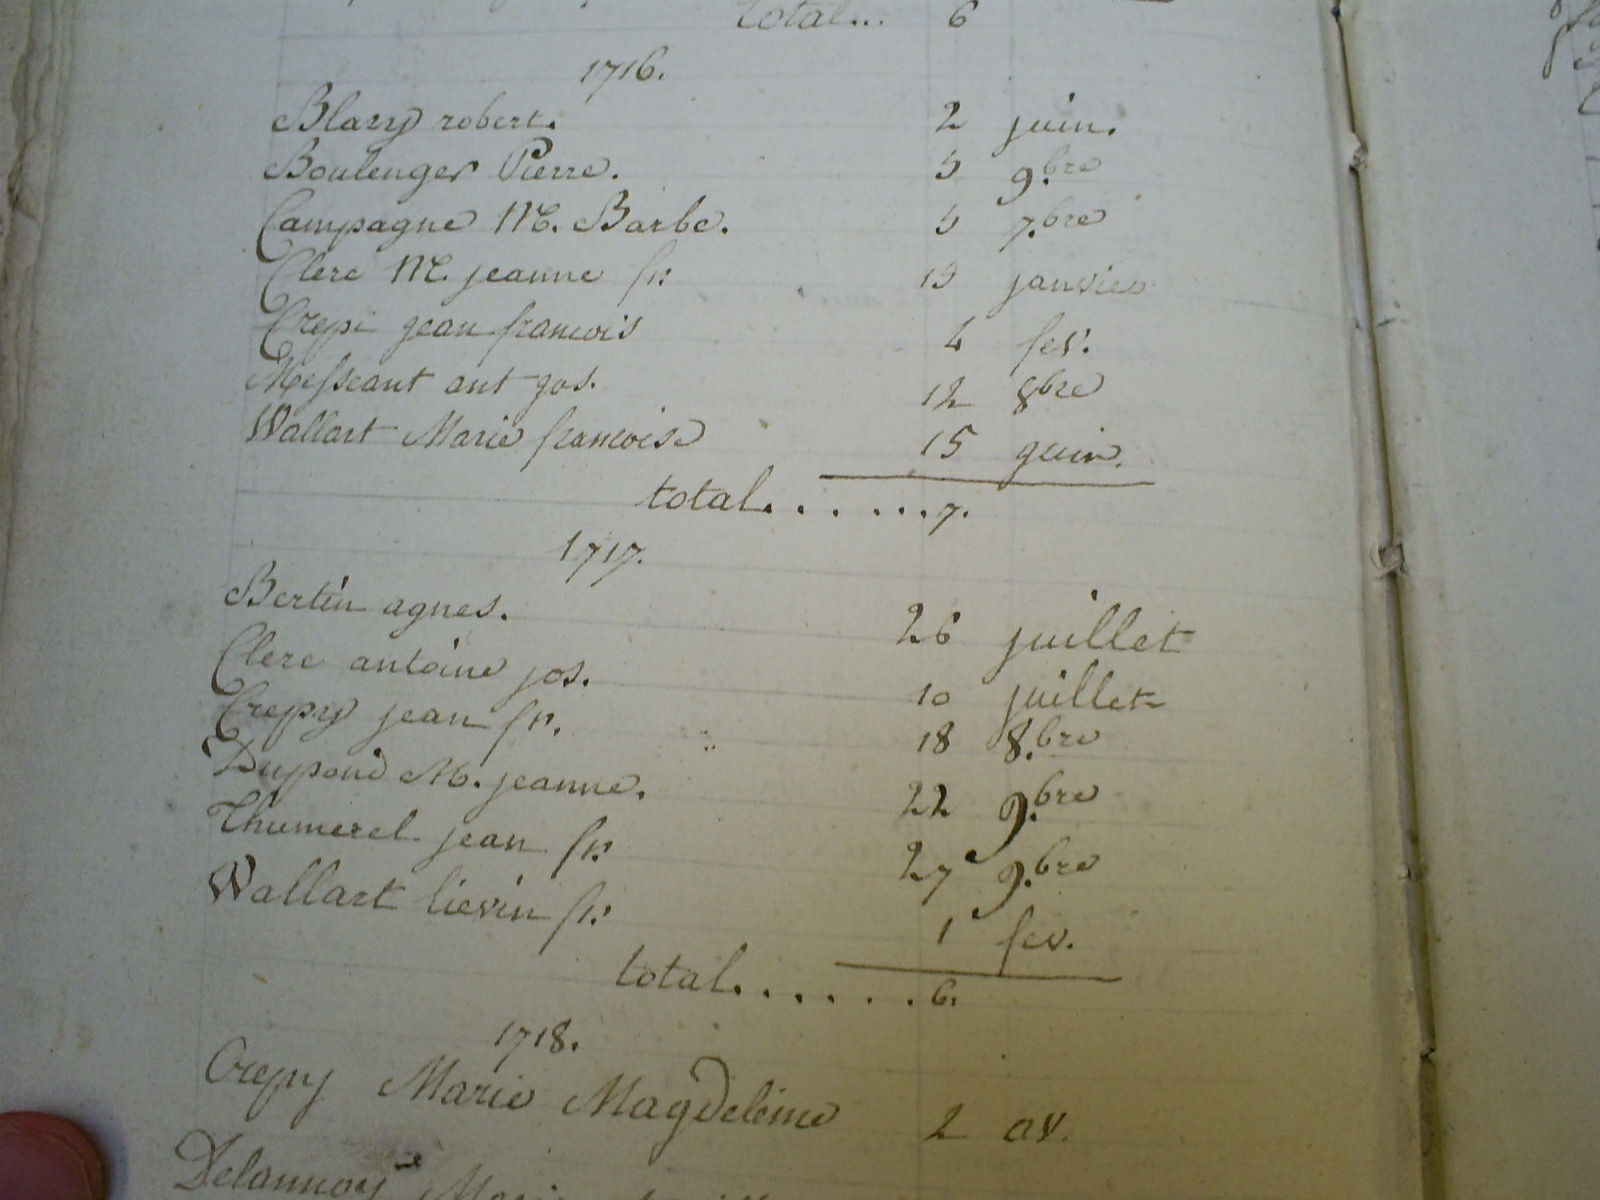 total... 6
1716.
Blary robert. 2 juin.
Boulenger Pierre. 5 9.bre
Campagne M. Barbe. 5 7.bre
Clerc M. jeanne fr: 15 janvier
Crepi jean francois 4 fev.
Messeant ant jos. 12 8bre
Wallart Marie francoise 15 juin.
total. . . . . . . 7.
1717.
Bertin agnes. 26 juillet
Clerc antoine jos. 10 juillet
Crepy jean fr. 18 8.bre
Dupond M. jeanne. 22 9.bre
Thumerel jean fr: 27 9.bre
Wallart lievin fr: 1 fev.
total. . . . . . . 6.
1718.
Crepy Marie Magdeleine 2 av.
Delannoy Marie